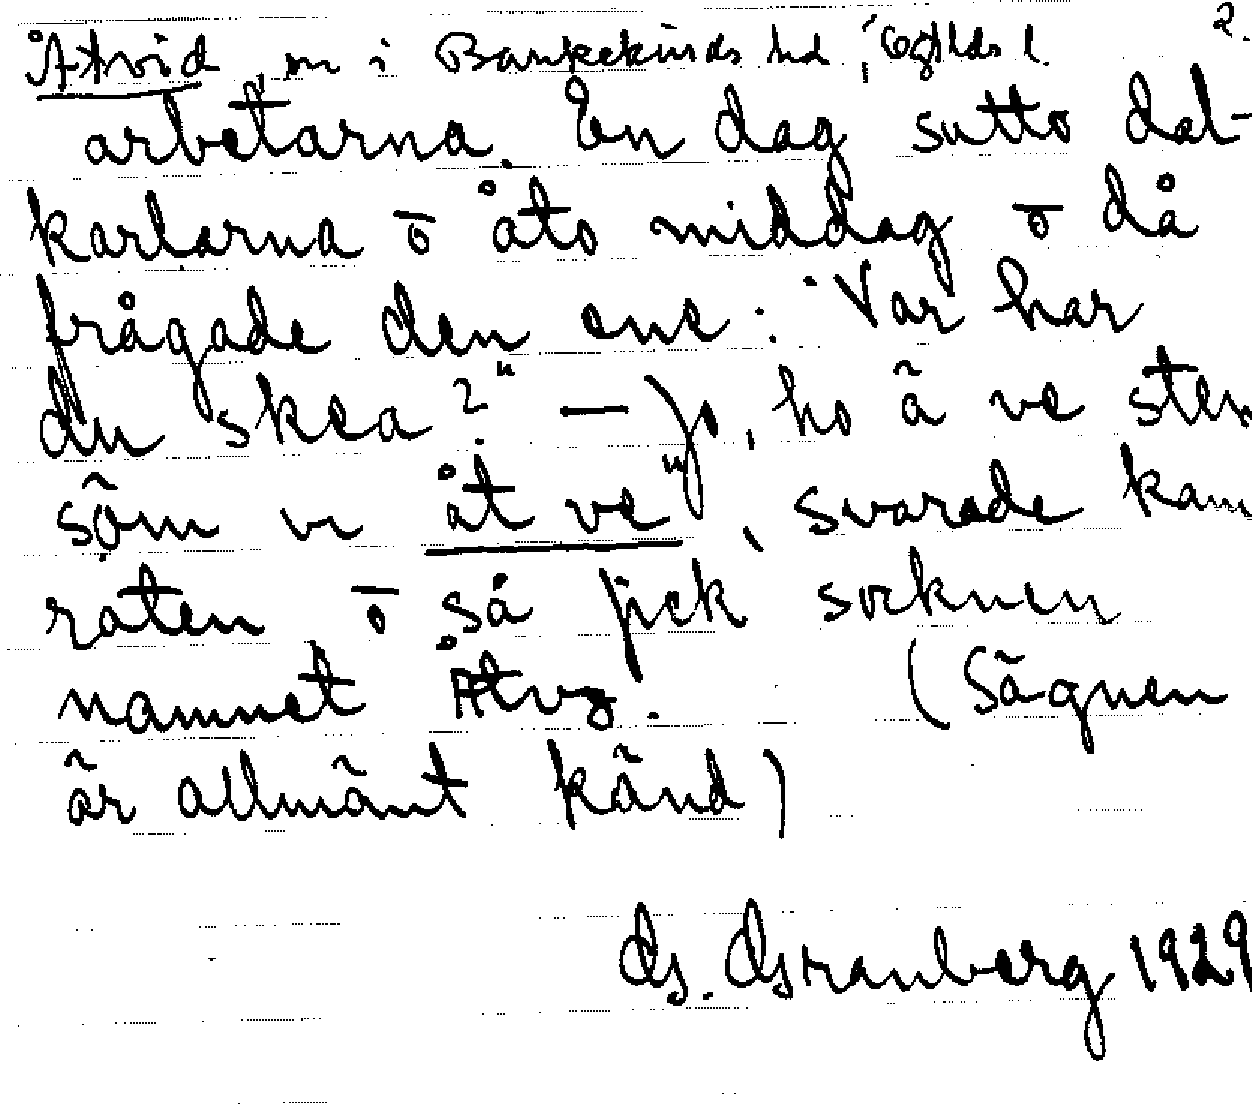 Åtvid, sn i Bankekinds hd, Ögtlds l. 2.
arbetarna. En dag sutto dal-
karlarna ō åto middag ō då
frågade den ene: "Var har
du skea?" — "Jo, ho ä ve sten
söm vi åt ve", svarade kam
raten ō så fick socknen
namnet Åtvz. (Sägnen
är allmänt känd)
G. Granberg 1929